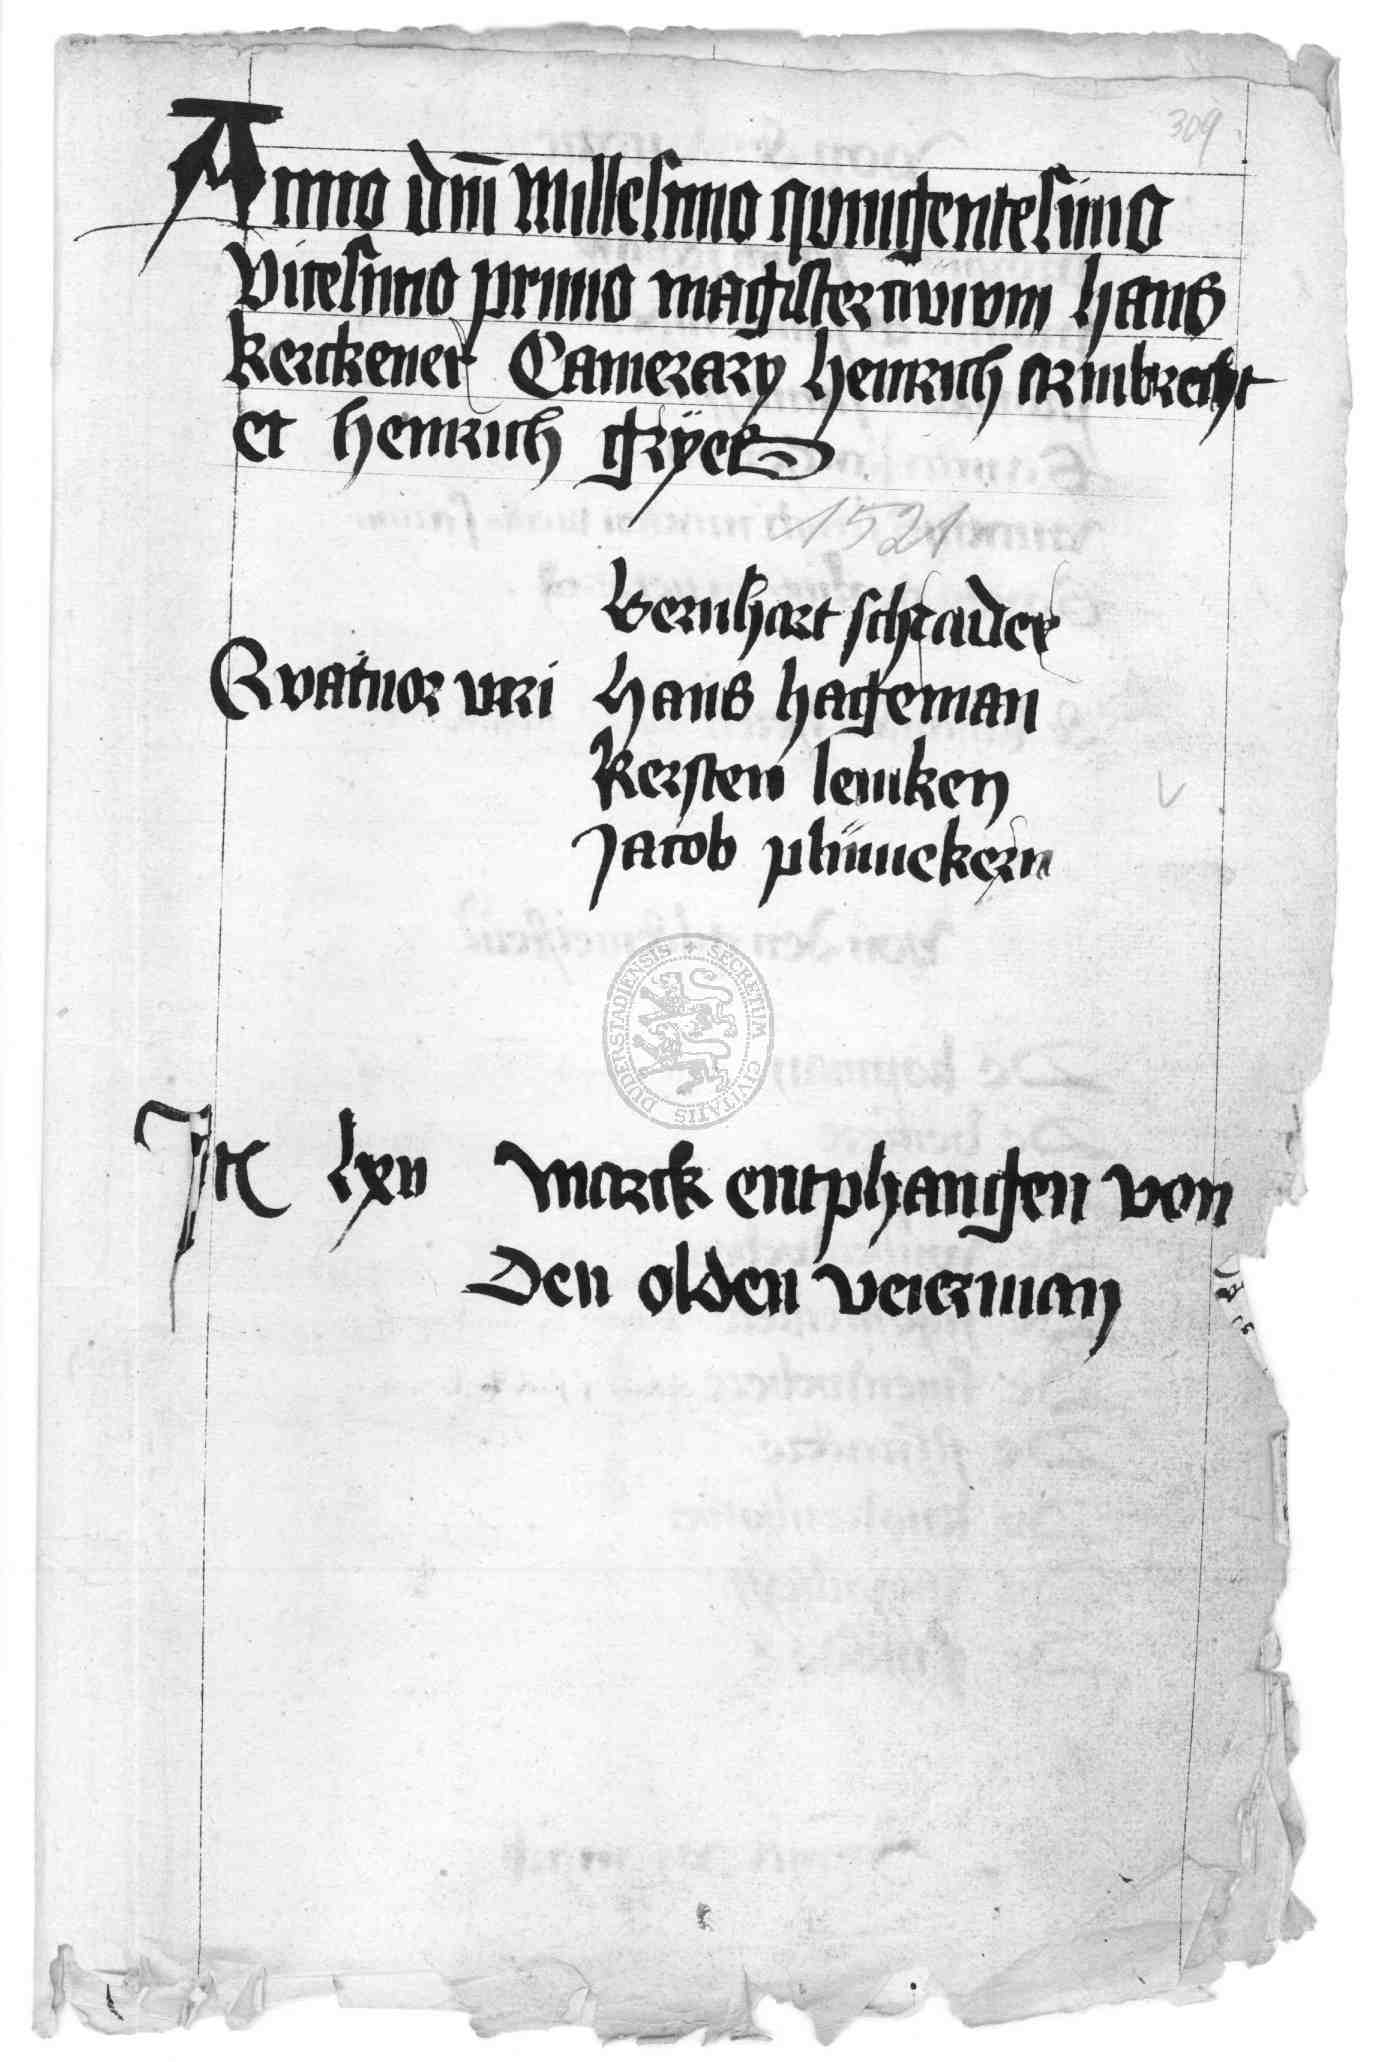 309
Anno dm̄ Millesimo quingentesimo
vicesimo primo magister civium hans
kerckener Camerary henrich armbrecht
et henrich
1521
Bernhart schrader
Quatuor viri hans hageman
Kersten lemken
Jacob
SECRETUM CIVITATIS DUDERSTADIENSIS
Itē lxv marck entphangen von
den olden veierman